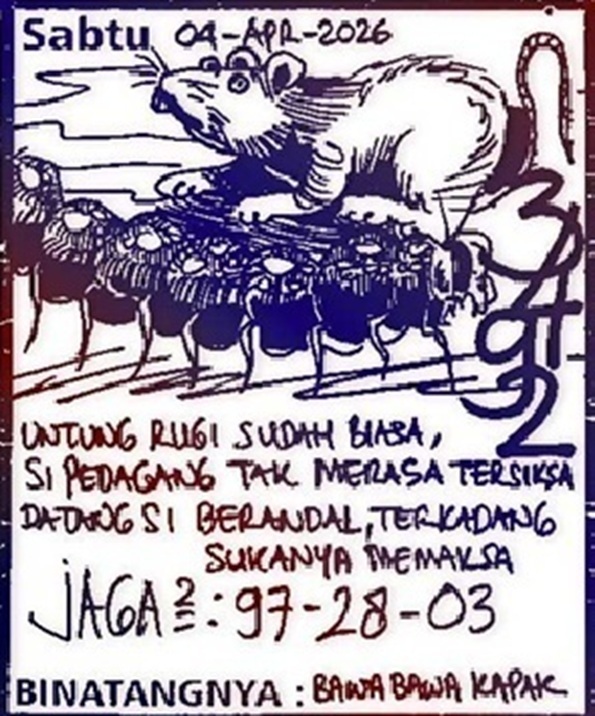 Sabtu 04-APR-2026
UNTUNG RUGI SUDAH BIASA,
SI PEDAGANG TAK MERASA TERSIKSA
DATANG SI BERANDAL, TERKADANG
SUKANYA MEMAKSA
JAGA2 : 97-28-03
BINATANGNYA : BAWA BAWA KAPAK